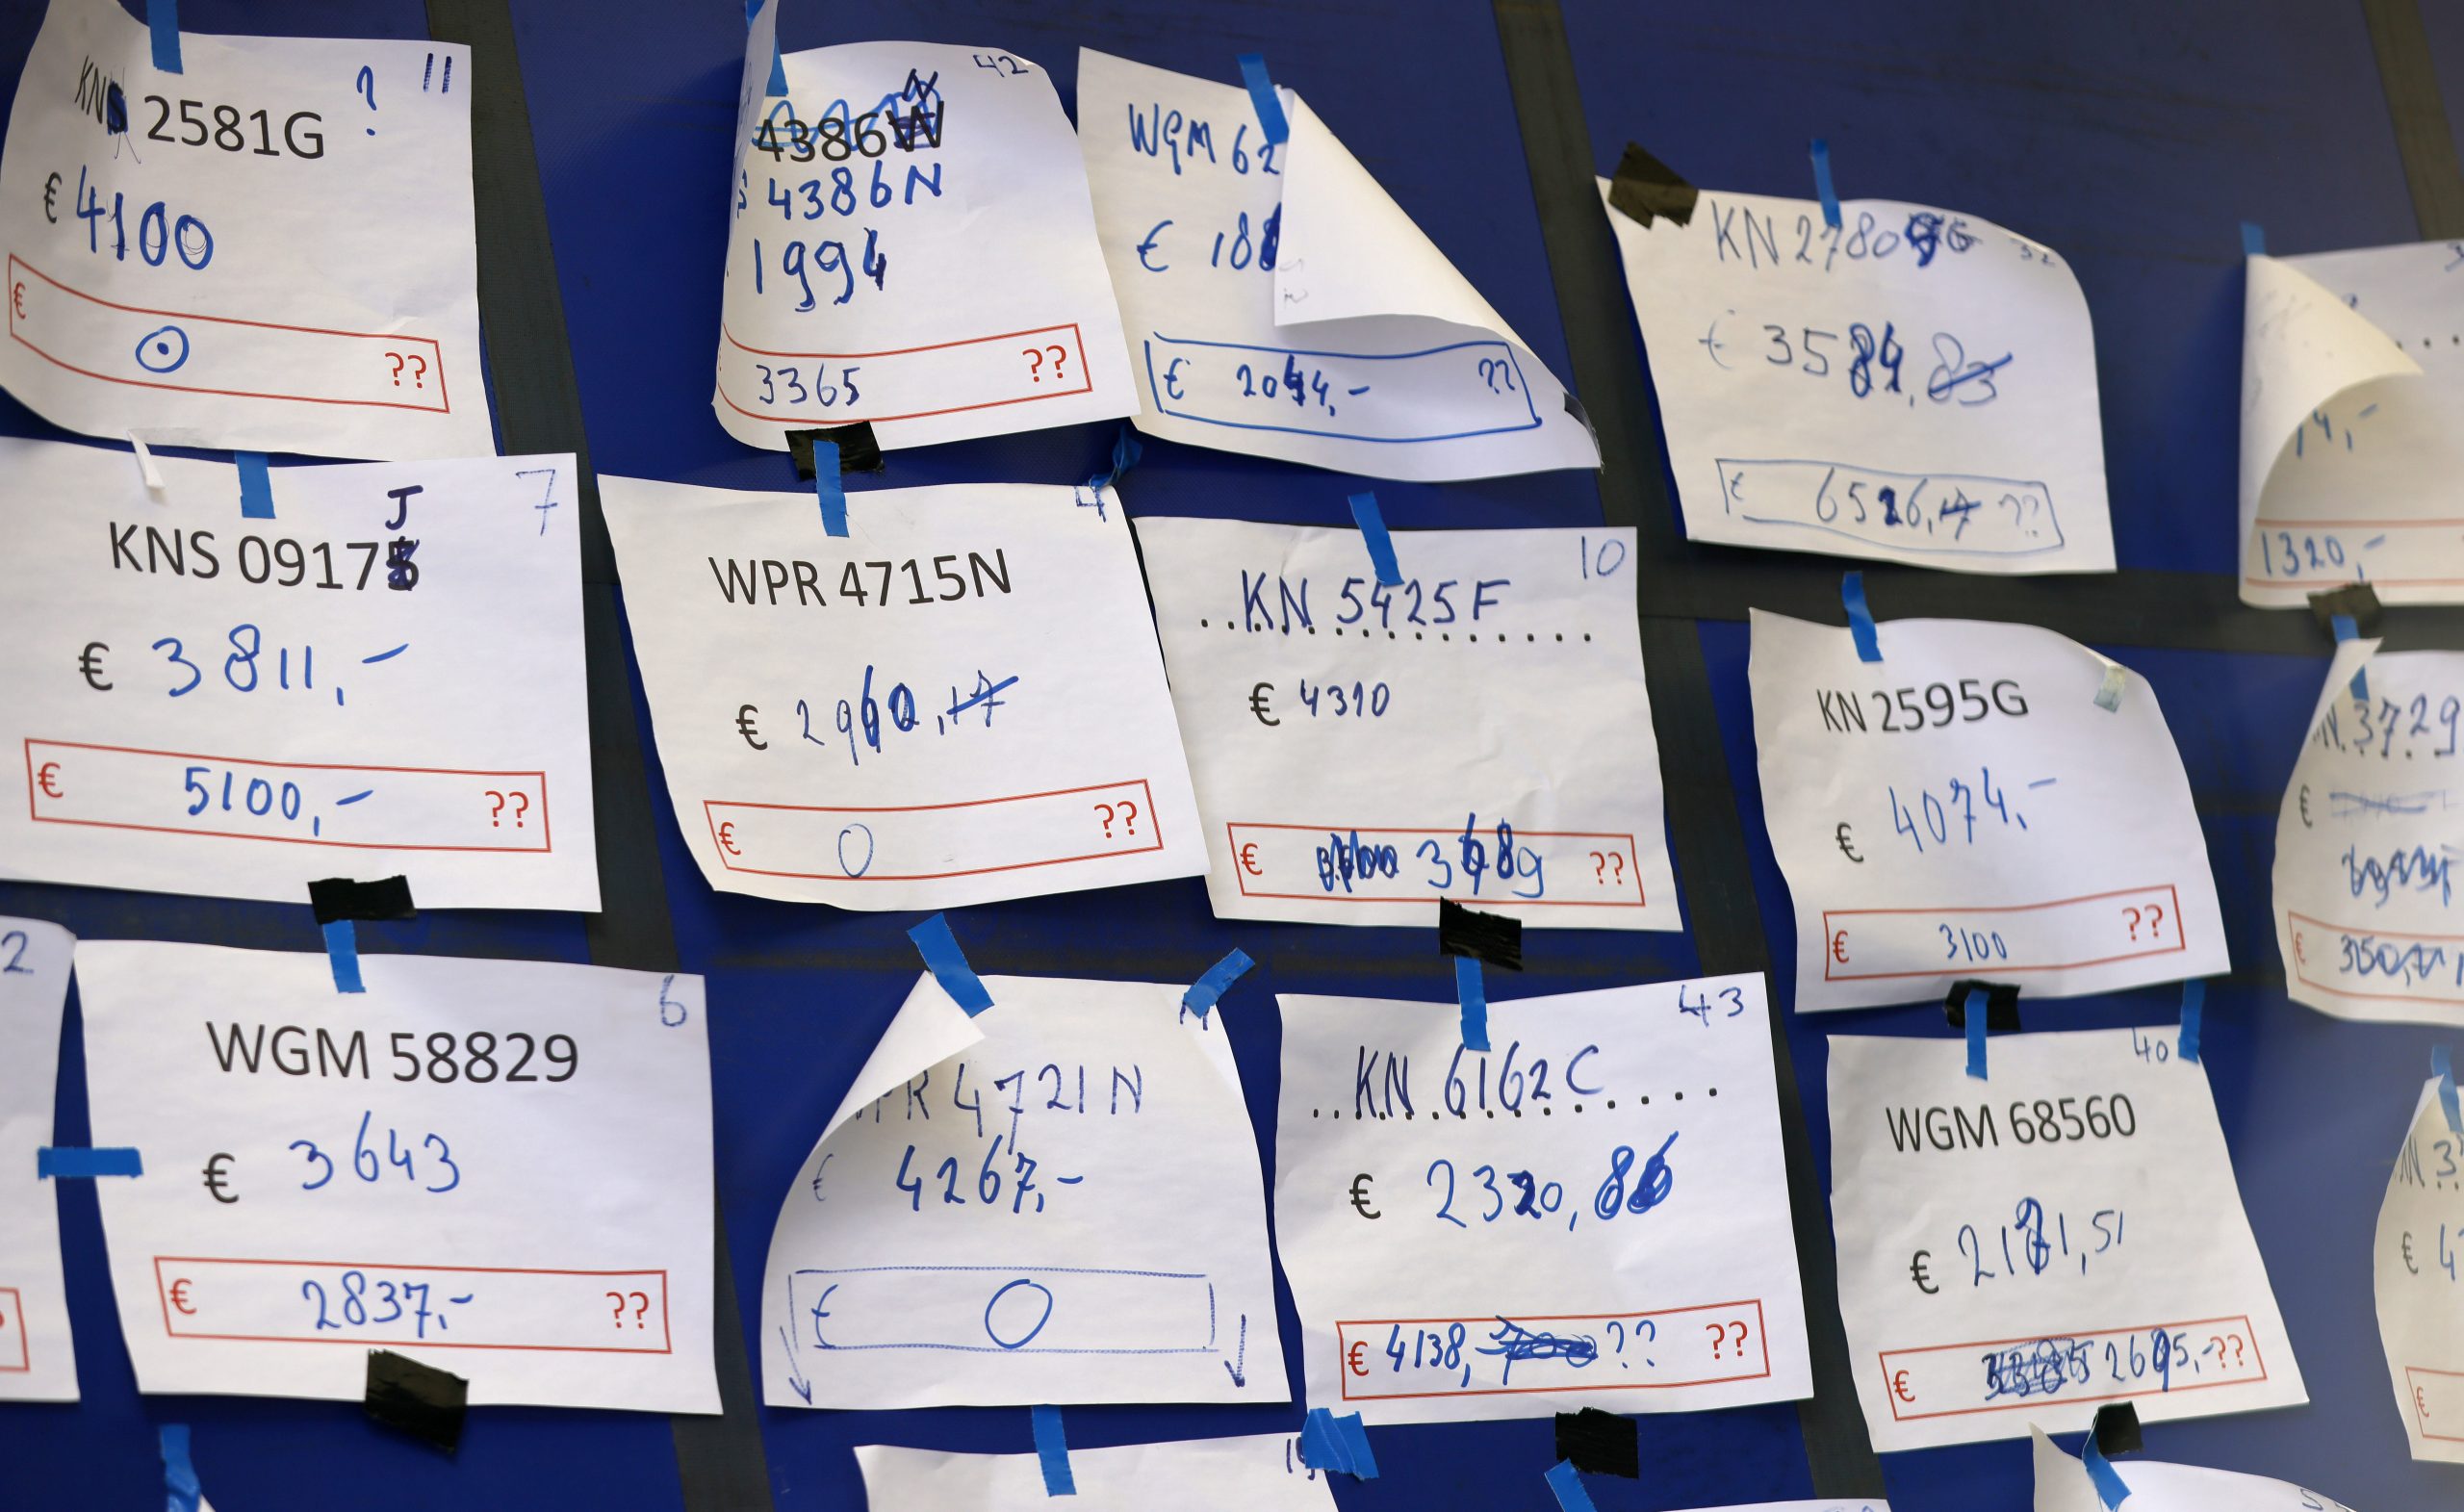 11
KN 2581G ?
€ 4100
€ 0 ??
42
4386N
1994
3365 ??
WGM 62
€ 188
€ 2044,- ??
32
KN 2780
€ 3584,
€ 6526, ??
1320,-
7
J
KNS 0917
€ 3811,-
€ 5100,- ??
4
WPR 4715N
€ 2960
€ 0 ??
10
KN 5425F
€ 4310
€ 3689 ??
KN 2595G
€ 4074,-
€ 3100 ??
N.3729
€
€
2
6
WGM 58829
€ 3643
€ 2837,- ??
PR 4721N
€ 4267,-
€ 0
43
KN 6162C
€ 2320,86
€ 4138, ?? ??
40
WGM 68560
€ 2181,51
€ 2695,- ??
€ 4
€